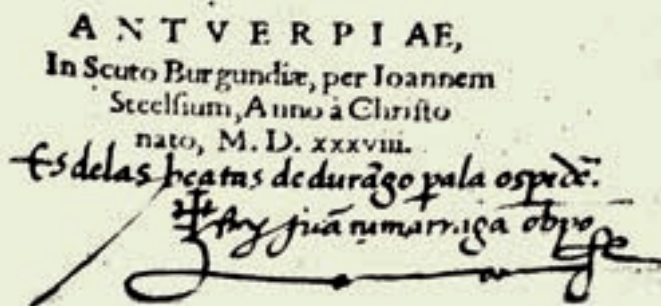 ANTVERPIAE,
In Scuto Burgundiæ, per Ioannem
Steelsium, Anno à Christo
nato, M. D. xxxviii.
Es delas beatas de durãgo pala ospedẽ.
fray juã çumarraga obpo